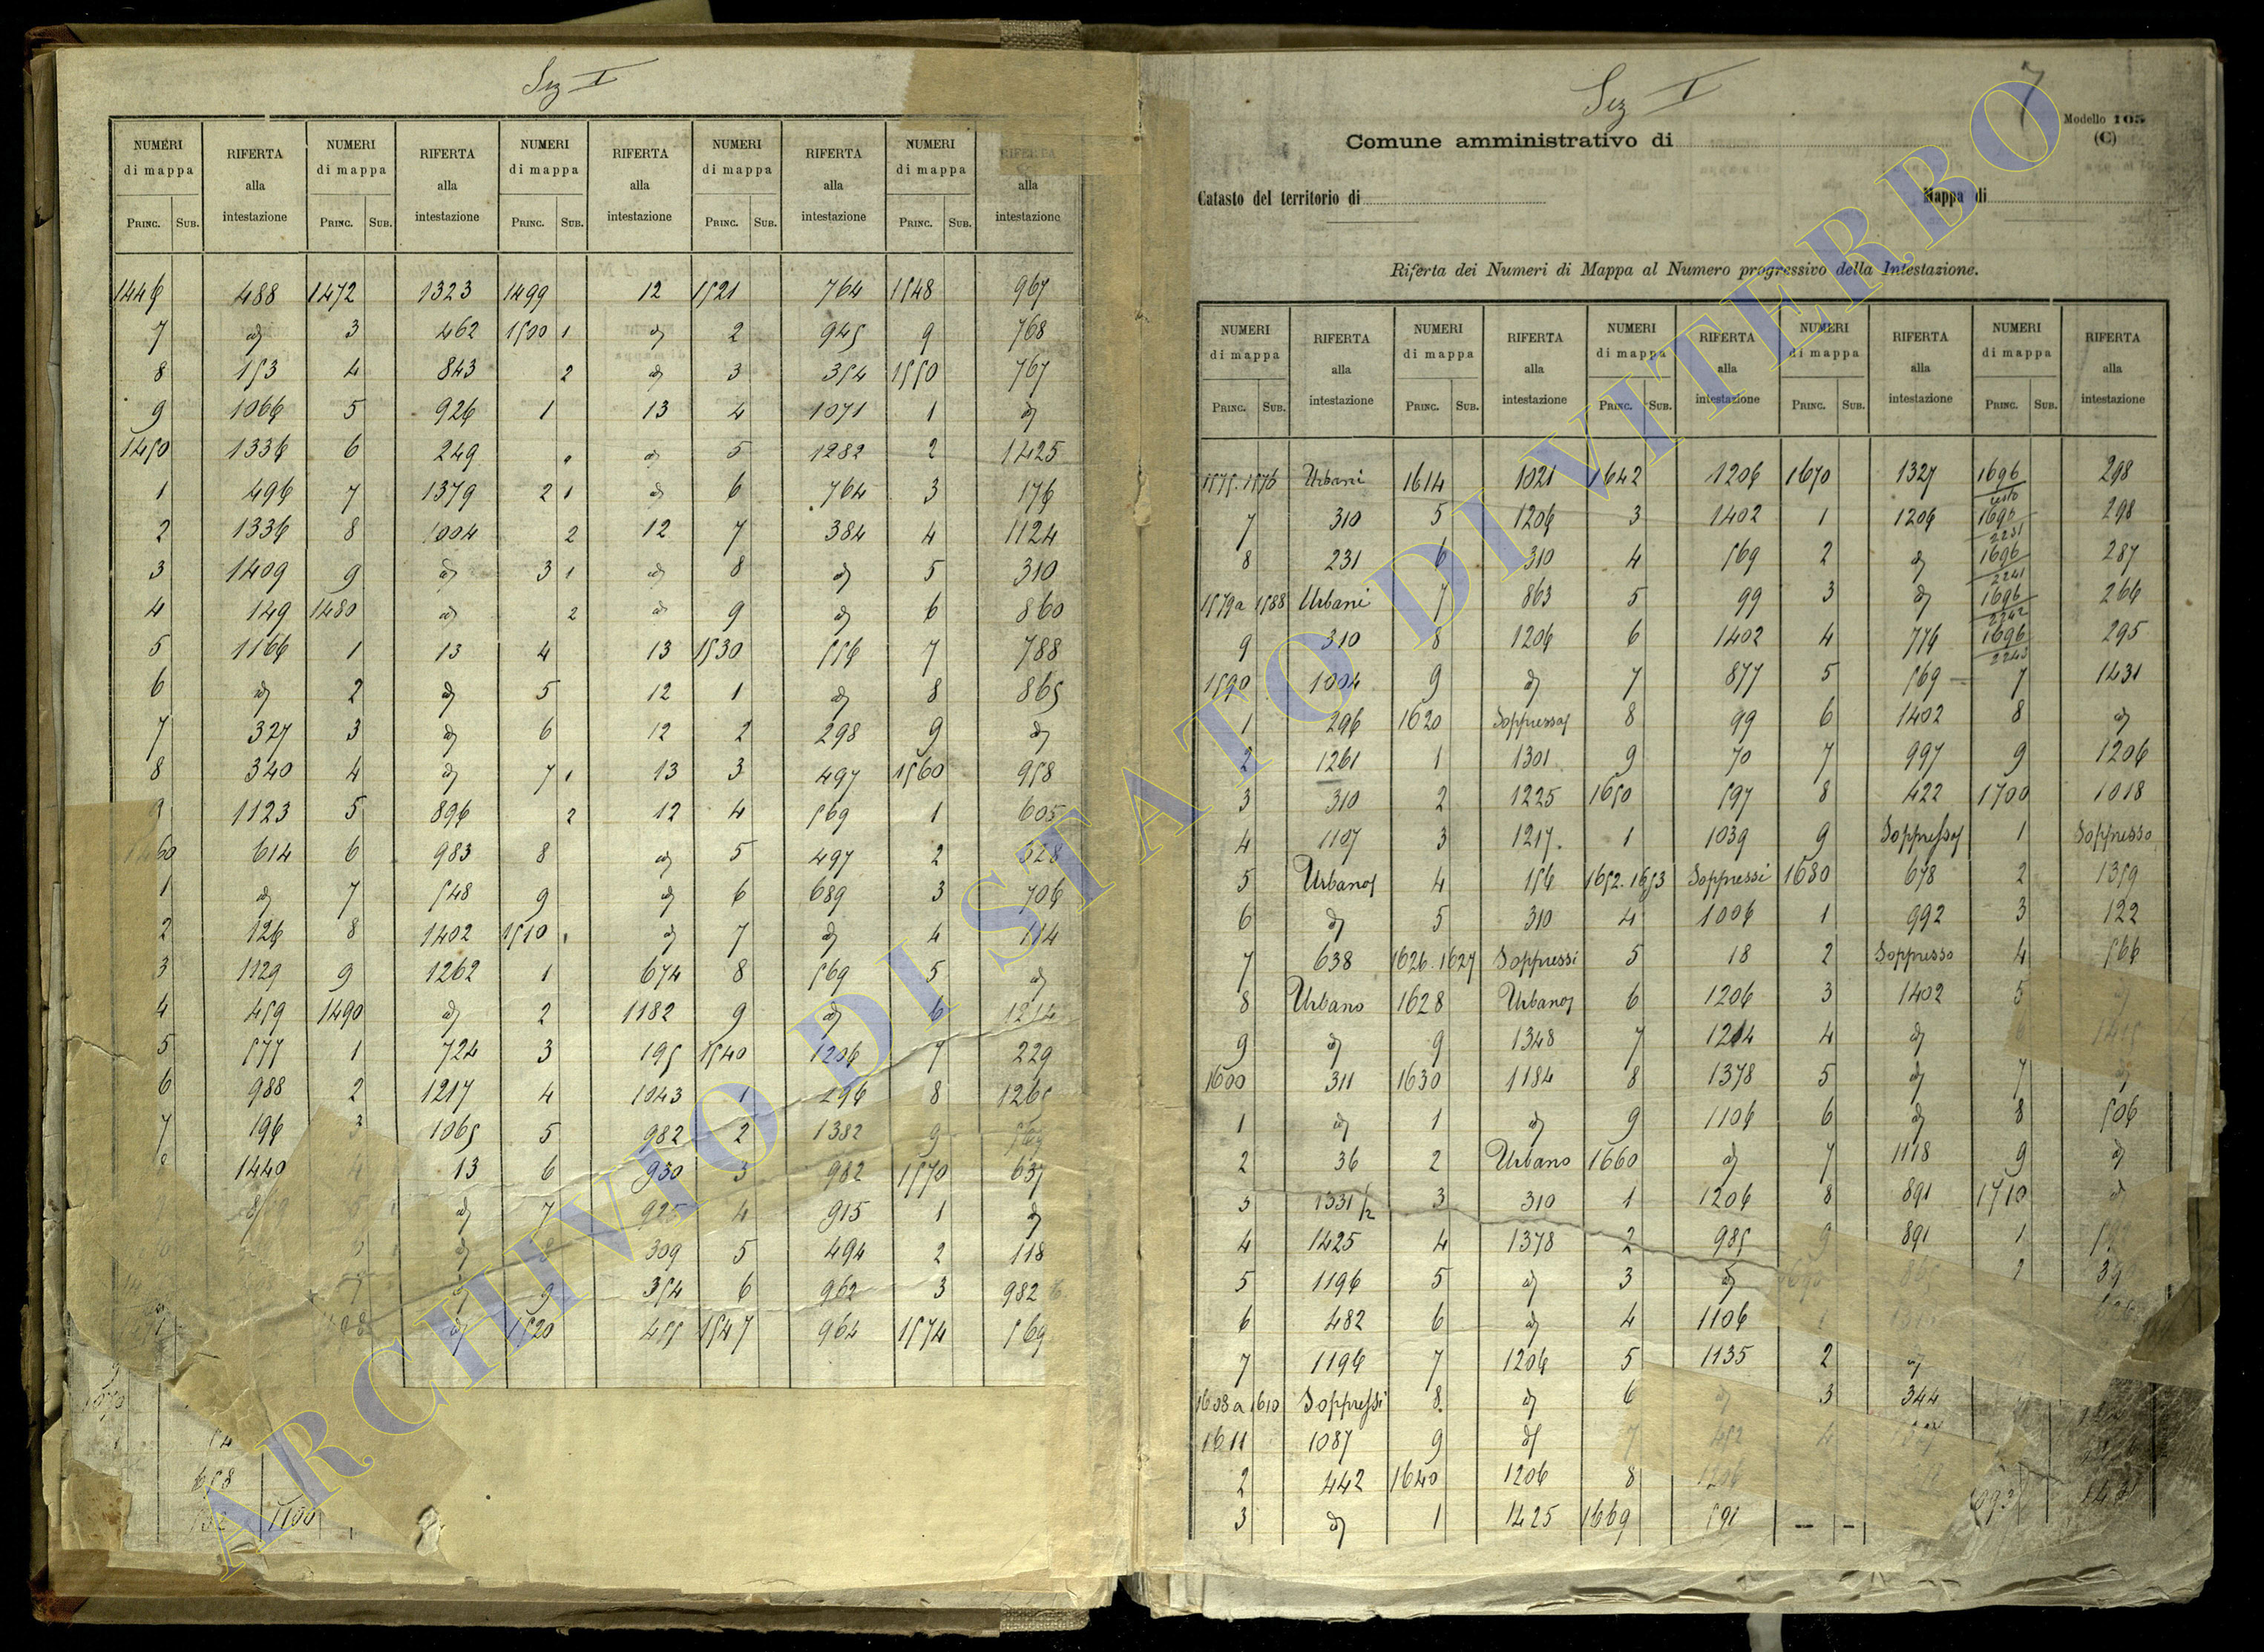 Sez I
NUMERI di mappa RIFERTA alla intestazione NUMERI di mappa RIFERTA alla intestazione NUMERI di mappa RIFERTA alla intestazione NUMERI di mappa RIFERTA alla intestazione NUMERI di mappa RIFERTA alla intestazione
PRINC. SUB. PRINC. SUB. PRINC. SUB. PRINC. SUB. PRINC. SUB.
1446 488 1472 1323 1499 12 1521 764 1548 967
7 d 3 462 1500 1 d 2 945 9 768
8 153 4 843 2 d 3 354 1550 767
9 1066 5 926 1 13 4 1071 1 d
1450 1336 6 249 d 5 1282 2 1425
1 496 7 1379 2 1 d 6 764 3 176
2 1336 8 1004 2 12 7 384 4 1124
3 1409 9 d 3 1 d 8 d 5 310
4 149 1480 d 2 d 9 d 6 860
5 1166 1 13 4 13 1530 556 7 788
6 d 2 d 5 12 1 d 8 865
7 327 3 d 6 12 2 298 9 d
8 340 4 d 7 1 13 3 497 1560 958
9 1123 5 896 2 12 4 569 1 605
1460 614 6 983 8 d 5 497 2 328
1 d 7 548 9 d 6 689 3 706
2 126 8 1402 1510 d 7 d 4 114
3 1129 9 1262 1 674 8 569 5 d
4 459 1490 d 2 1182 9 d 6 1214
5 577 1 724 3 195 1540 1206 7 229
6 988 2 1217 4 1043 1 296 8 1265
7 196 3 1065 5 982 2 1382 9 569
1440 4 13 6 930 3 982 1570 637
d 7 925 4 915 1 d
d 8 309 5 494 2 118
d 9 354 6 962 3 982
d 1520 455 1547 964 1574 569
658
1100
Sez I
7
Modello 105
(C)
Comune amministrativo di
Catasto del territorio di Mappa di
Riferta dei Numeri di Mappa al Numero progressivo della Intestazione.
NUMERI di mappa RIFERTA alla intestazione NUMERI di mappa RIFERTA alla intestazione NUMERI di mappa RIFERTA alla intestazione NUMERI di mappa RIFERTA alla intestazione NUMERI di mappa RIFERTA alla intestazione
PRINC. SUB. PRINC. SUB. PRINC. SUB. PRINC. SUB. PRINC. SUB.
1575.1576 Urbani 1614 1021 1642 1206 1670 1327 1696 resto 298
7 310 5 1206 3 1402 1 1206 1696 2231 298
8 231 6 310 4 569 2 d 1696 2241 287
1579a 1588 Urbani 7 863 5 99 3 d 1696 2242 266
9 310 8 1206 6 1402 4 776 1696 2243 295
1590 1004 9 d 7 877 5 569 7 1431
1 296 1620 Soppresso 8 99 6 1402 8 d
2 1261 1 1301 9 70 7 997 9 1206
3 310 2 1225 1650 597 8 422 1700 1018
4 1107 3 1217 1 1039 9 Soppresso 1 Soppresso
5 Urbano 4 156 1652.1653 Soppressi 1680 678 2 1359
6 d 5 310 4 1006 1 992 3 122
7 638 1626.1627 Soppressi 5 18 2 Soppresso 4 566
8 Urbano 1628 Urbano 6 1206 3 1402 5 d
9 d 9 1348 7 1214 4 d 6 1415
1600 311 1630 1184 8 1378 5 d 7 d
1 d 1 d 9 1106 6 d 8 506
2 36 2 Urbano 1660 d 7 1118 9 d
3 1331/2 3 310 1 1206 8 891 1710 d
4 1425 4 1378 2 985 9 891 1
5 1196 5 d 3 d 2
6 482 6 d 4 1106
7 1196 7 1206 5 1135 2 d
1608a1610 Soppressi 8 d 6 d 3 344
1611 1087 9 d 7 452 4
2 442 1640 1206 8 1206
3 d 1 1425 1669 591 – –
ARCHIVIO DI STATO DI VITERBO